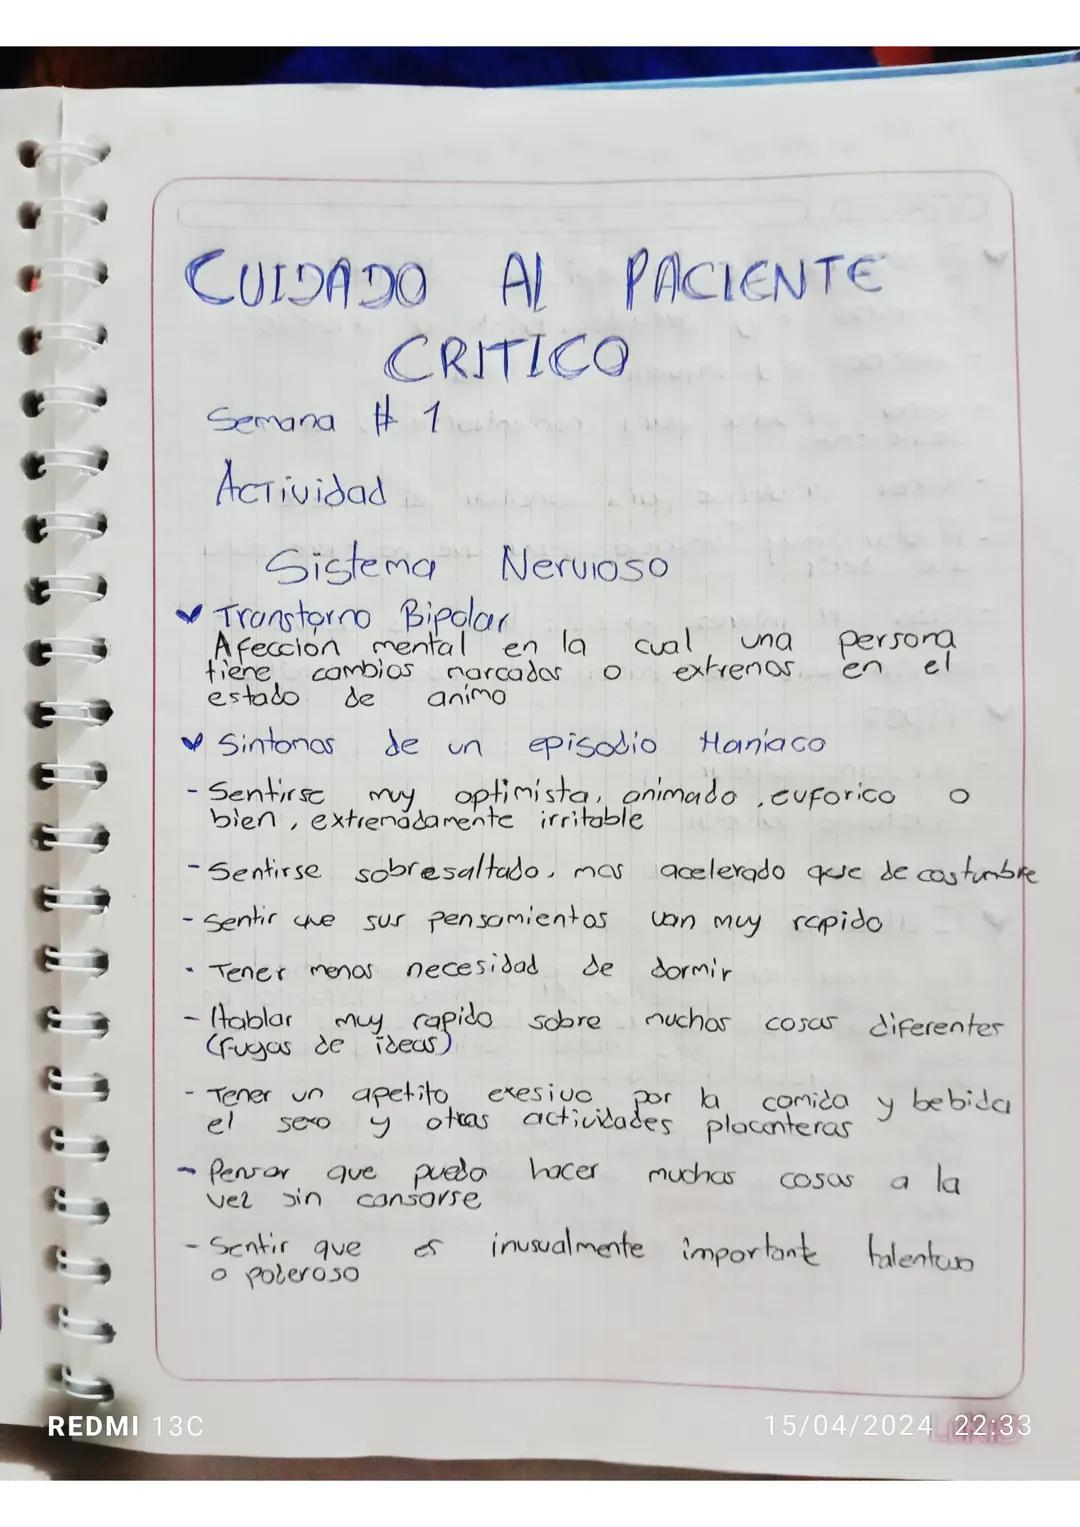 CUIDADO Al PACIENTE
CRITICO
Semana # 1
Actividad
Sistema Nervioso
Transtorno Bipolar
Afeccion mental en la cual una persona
tiene cambios marcados o extremos en el
estado de animo
Sintomas de un episodio Maniaco
- Sentirse muy optimista, animado, euforico o
bien, extremadamente irritable
- Sentirse sobresaltado, mas acelerado que de costumbre
- Sentir que sus pensamientos van muy rapido
- Tener menos necesidad de dormir
- Hablar muy rapido sobre muchas cosas diferentes
(fugas de ideas)
- Tener un apetito exesivo por la comida y bebida
el sexo y otras actividades placenteras
- Pensar que puedo hacer muchas cosas a la
vez sin cansarse
- Sentir que es inusualmente importante talentoso
o poderoso
REDMI 13C
15/04/2024 22:33